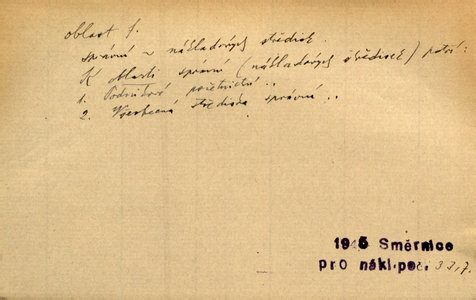 oblast 1.
správní ~ nákladových středisek.
K oblasti správní (nákladových středisek) patří:
1. Podnikové
2. Všeobecná střediska správní ..
1945 Směrnice
pro nákl. poč. 33,7.